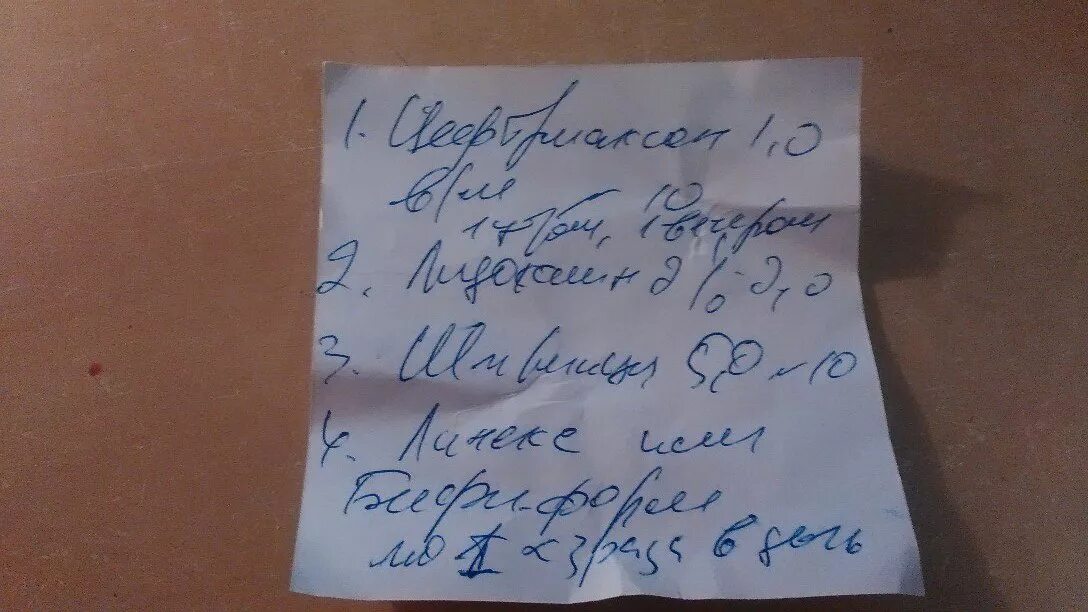 1. Цефтриаксон 1,0
в/м 10
1 утром, 1 вечером
2. Лидокаин 2% 2,0
3. Шприцы 5,0 N 10
4. Линекс или
Бифи-форм
по I x 3 раза в день